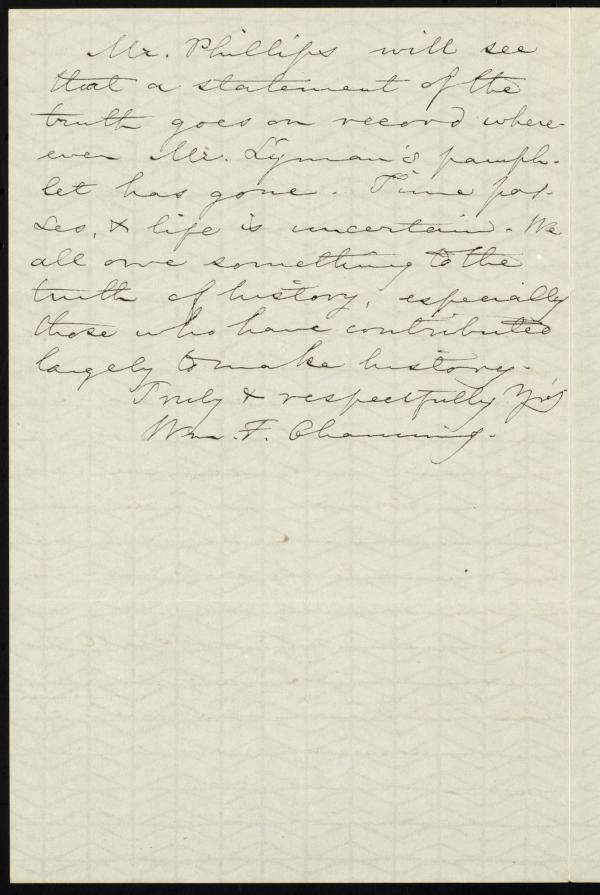 Mr. Phillips will see
that a statement of the
truth goes on record where-
ever Mr. Lyman's pamph-
let has gone. Time pas-
ses, & life is uncertain. We
all owe something to the
truth of history, especially
those who have contributed
largely to make history.
Truly & respectfully Yrs
Wm. F. Channing.